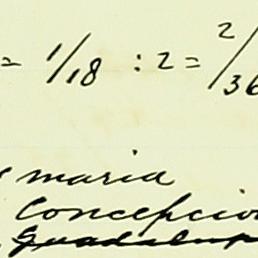 = 1/18 : 2 = 2/36
maria
Concepcio
Guadalup